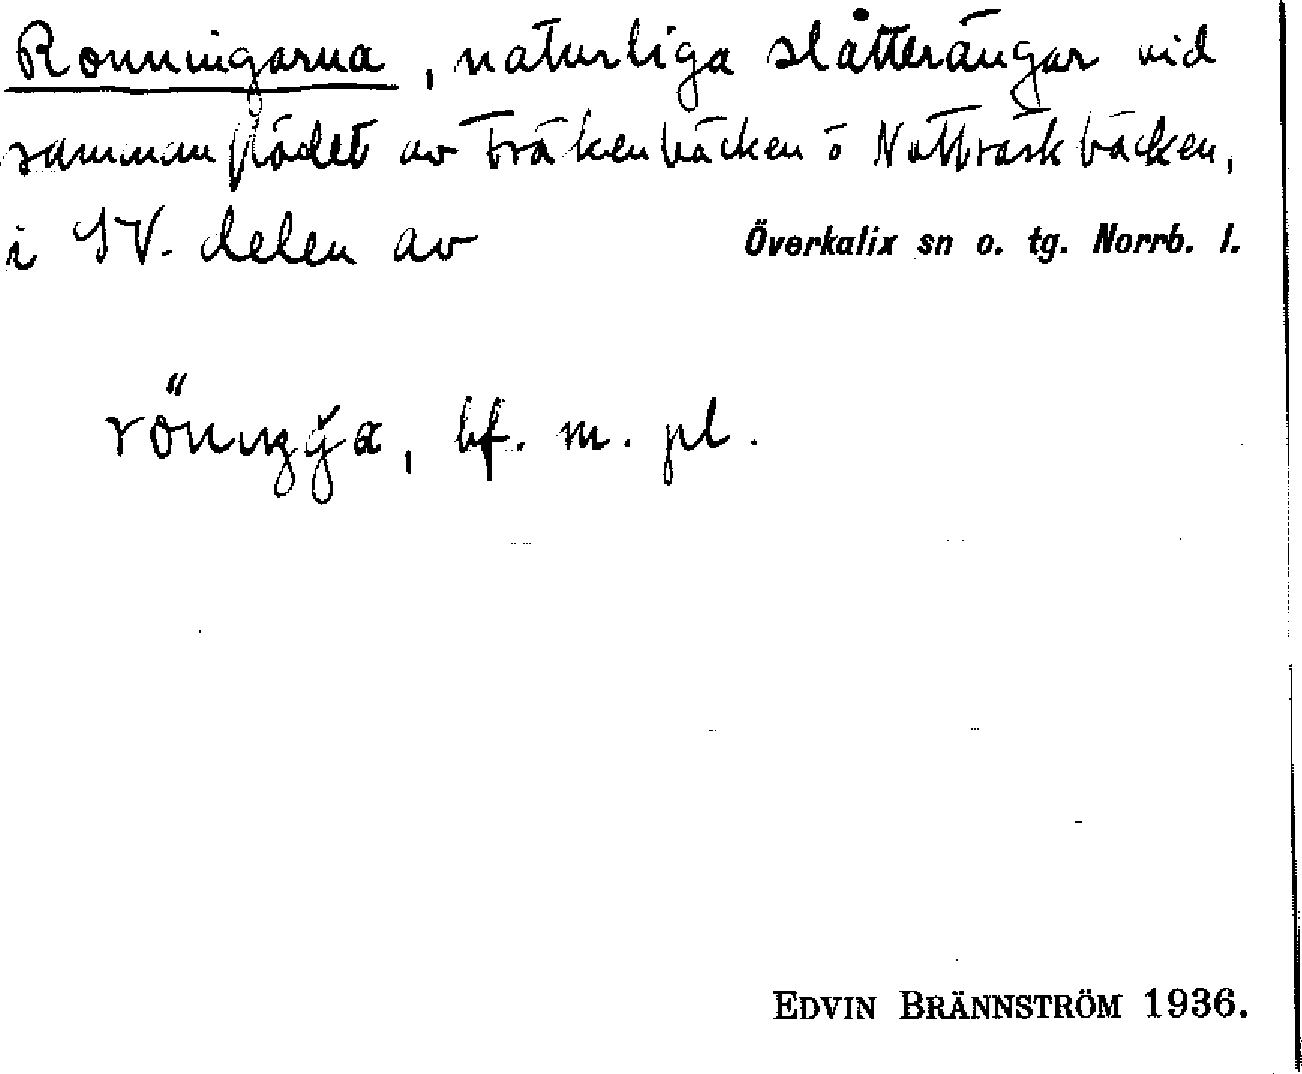 Rönningarna, naturliga slåtterängar vid
sammanflödet av Fräkenbäcken o Nattträskbäcken,
i SV. delen av Överkalix sn o. tg. Norrb. l.
bf. m. pl.
EDVIN BRÄNNSTRÖM 1936.